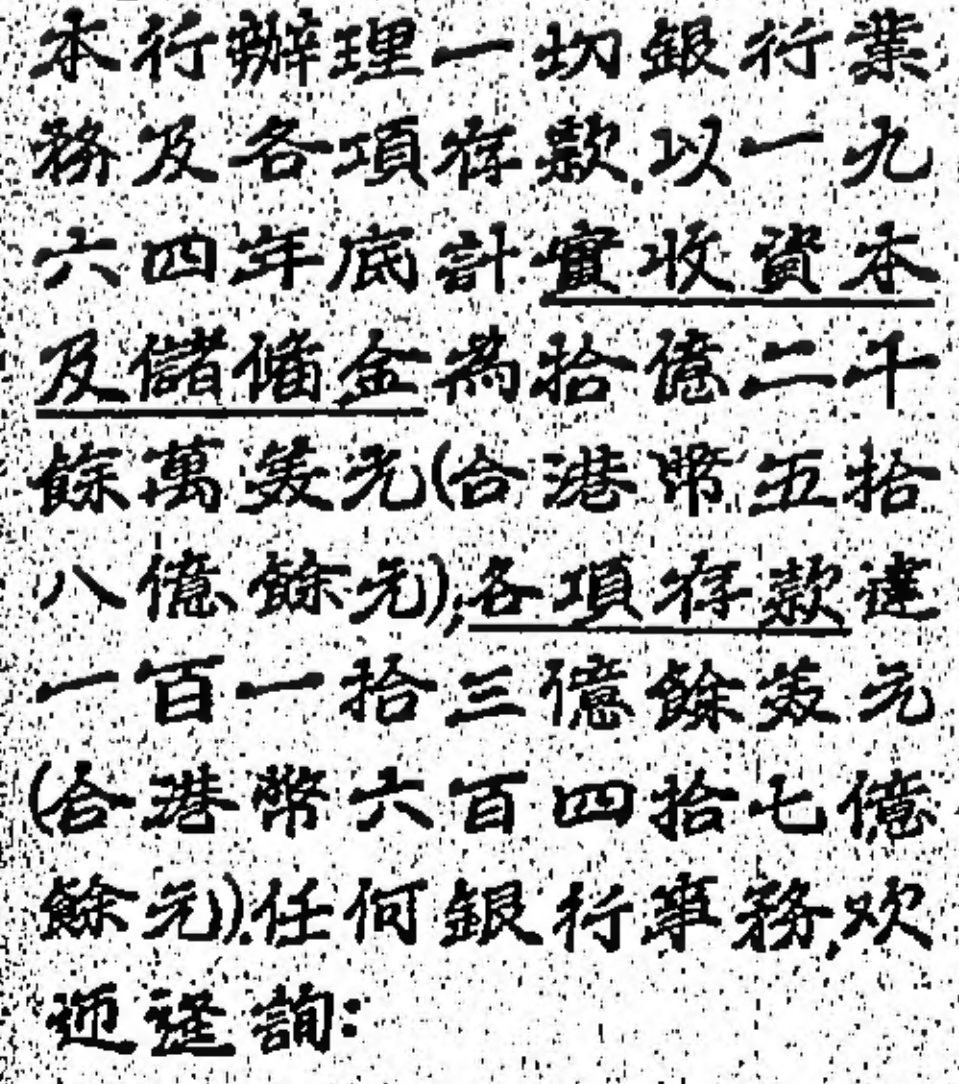 本行辦理一切銀行業
務及各項存款,以一九
六四年底計實收資本
及儲備金為拾億二千
餘萬美元(合港幣五拾
八億餘元);各項存款達
一百一拾三億餘美元
(合港幣六百四拾七億
餘元).任何銀行事務,欢
迎 詢: